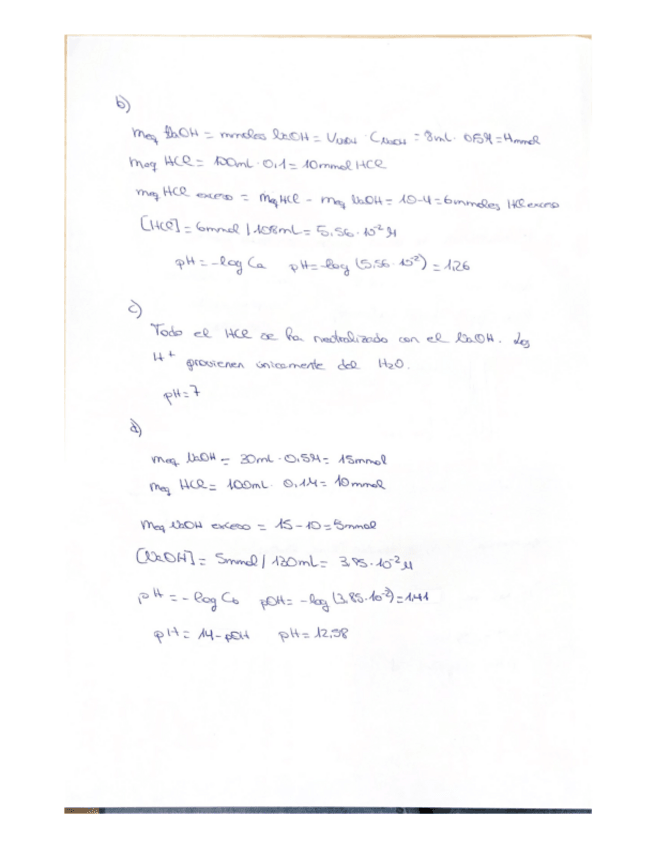 b)
meq NaOH = mmoles NaOH = VNaOH · CNaOH = 8mL · 0,5M = 4mmol
meq HCl = 100mL · 0,1 = 10mmol HCl
meq HCl exceso = meq HCl - meq NaOH = 10-4 = 6mmoles HCl exceso
[HCl] = 6mmol / 108mL = 5,56·10⁻² M
pH = -log Ca pH = -log (5,56·10⁻²) = 1,26
c)
Todo el HCl se ha neutralizado con el NaOH. Los
H⁺ provienen únicamente del H2O.
pH = 7
d)
meq NaOH = 30mL · 0,5M = 15mmol
meq HCl = 100mL · 0,1M = 10mmol
meq NaOH exceso = 15-10 = 5mmol
[NaOH] = 5mmol / 130mL = 3,85·10⁻² M
pH = -log Cb pOH = -log (3,85·10⁻²) = 1,41
pH = 14-pOH pH = 12,58